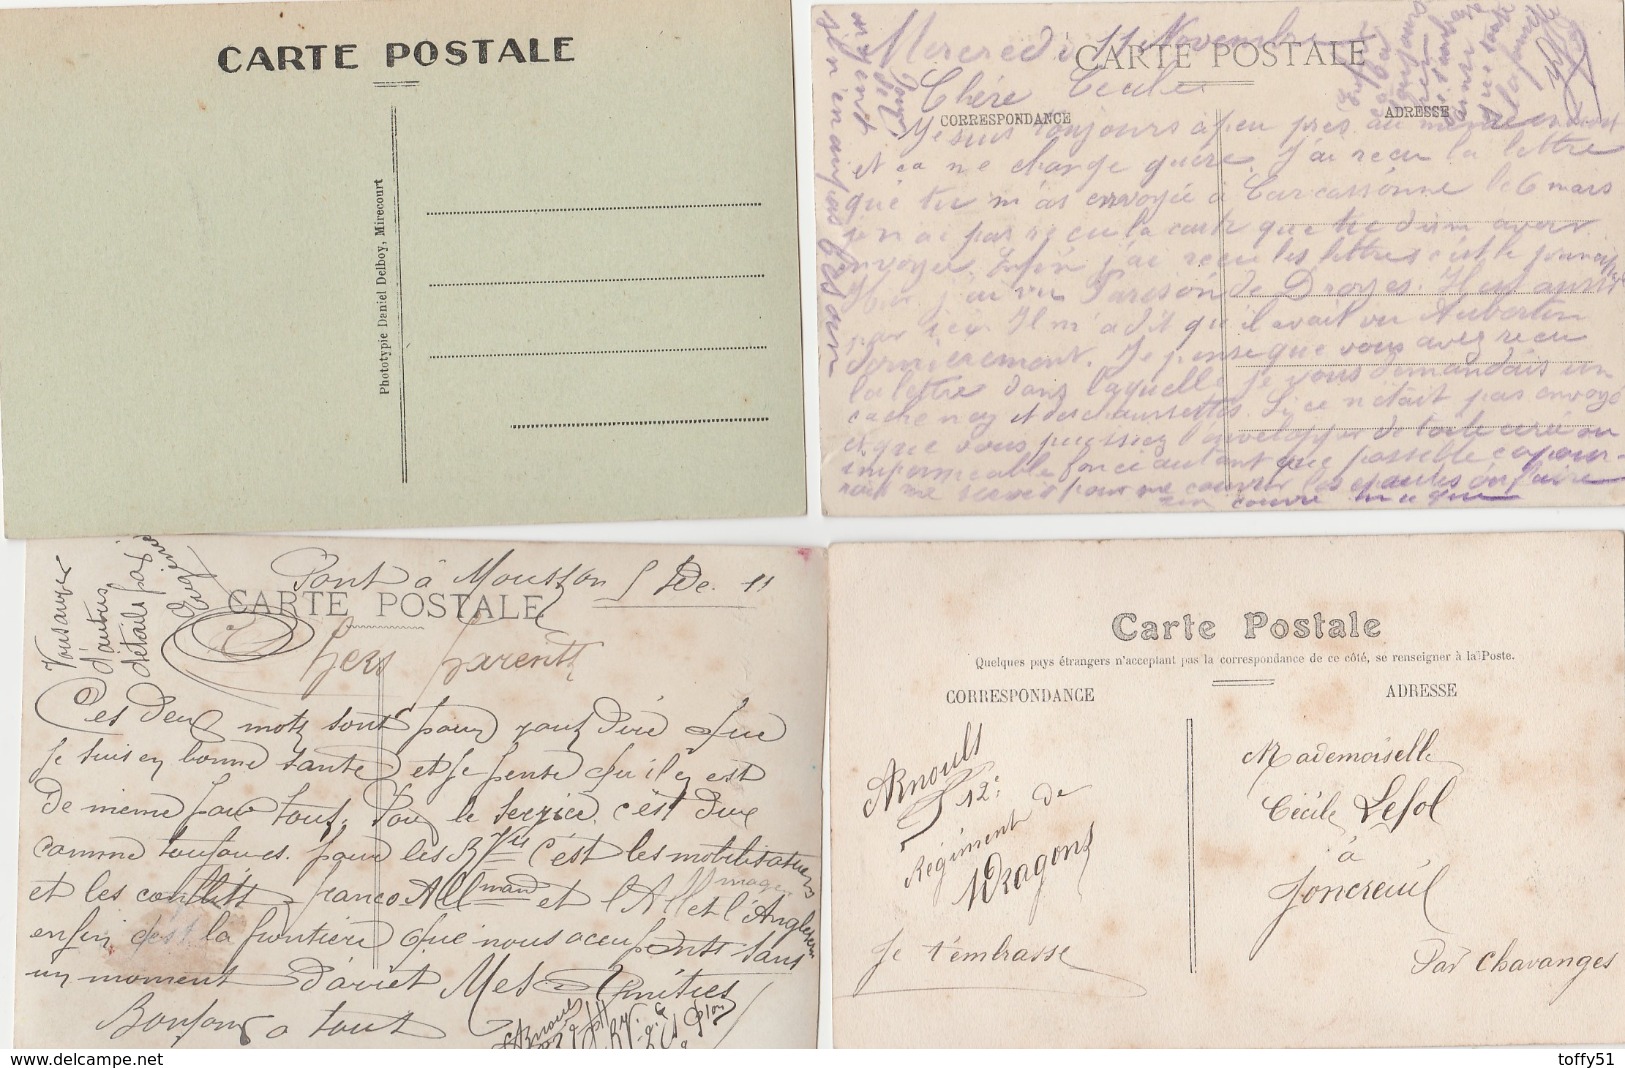 CARTE POSTALE
Phototypie Daniel Delboy, Mirecourt
Mercredi 11 Novembre
CARTE POSTALE
Chère Cecile
CORRESPONDANCE
ADRESSE
Je suis toujours a peu pres au meme endroit
et ca ne change guere. J'ai recu la lettre
que tu m'as envoyée à Carcassonne le 6 mars
je n'ai pas recu la carte que tu dis m'avoir
envoyée. Enfin j'ai recu les lettres c'est le principal
Hier j'ai vu de Droyes. Il est aussi
par ici. Il m'a dit qu'il avait vu Aubertin
dernierement. Je pense que vous avez recu
la lettre dans laquelle je vous demandais un
cache nez et des chaussettes. Si ce n'etait pas envoyé
et que vous puissiez l'envelopper de toile cirée ou
impermeable foncé autant que possible ca pour-
rait me servir pour me couvrir les epaules ou faire
un couvre
Pont à Mousson 5 De. 11
CARTE POSTALE
Chers Parents
Ces deux mots sont pour vous dire que
Je suis en bonne santé et Je pense qu'il en est
de même pour tous. Pour le Service c'est dure
comme toujours. pour les c'est les mobilisations
et les conflits franco-Allmand et l'All et l'Angleterre
enfin c'est la frontière que nous occupons sans
un moment d'arret Mes Amitiés
Bonjour a tout
Vous aurez
d'autres
détails
Carte Postale
Quelques pays étrangers n'acceptant pas la correspondance de ce côté, se renseigner à la Poste.
CORRESPONDANCE
ADRESSE
Arnoults
12e
Régiment de
Dragons
Je t'embrasse
Mademoiselle
Cécile Lesol
à
Joncreuil
Par Chavanges
toffy51